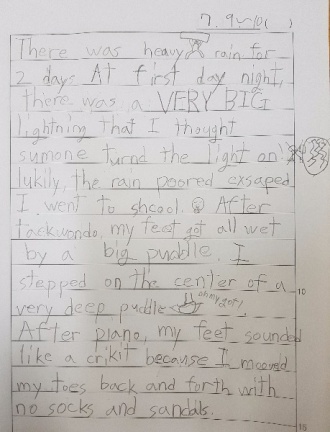 7. 9~10( )
There was heavy rain for
2 days At first day night,
there was a VERY BIG
lightning that I thought
sumone turnd the light on!
lukily, the rain poored exsaped
I went to shcool. After
taekwondo, my feet got all wet
by a big puddle. I
stepped on the center of a
very deep puddle oh my gosh!
After piano, my feet sounded
like a crikit because I mooved
my toes back and forth with
no socks and sandals.
10
15